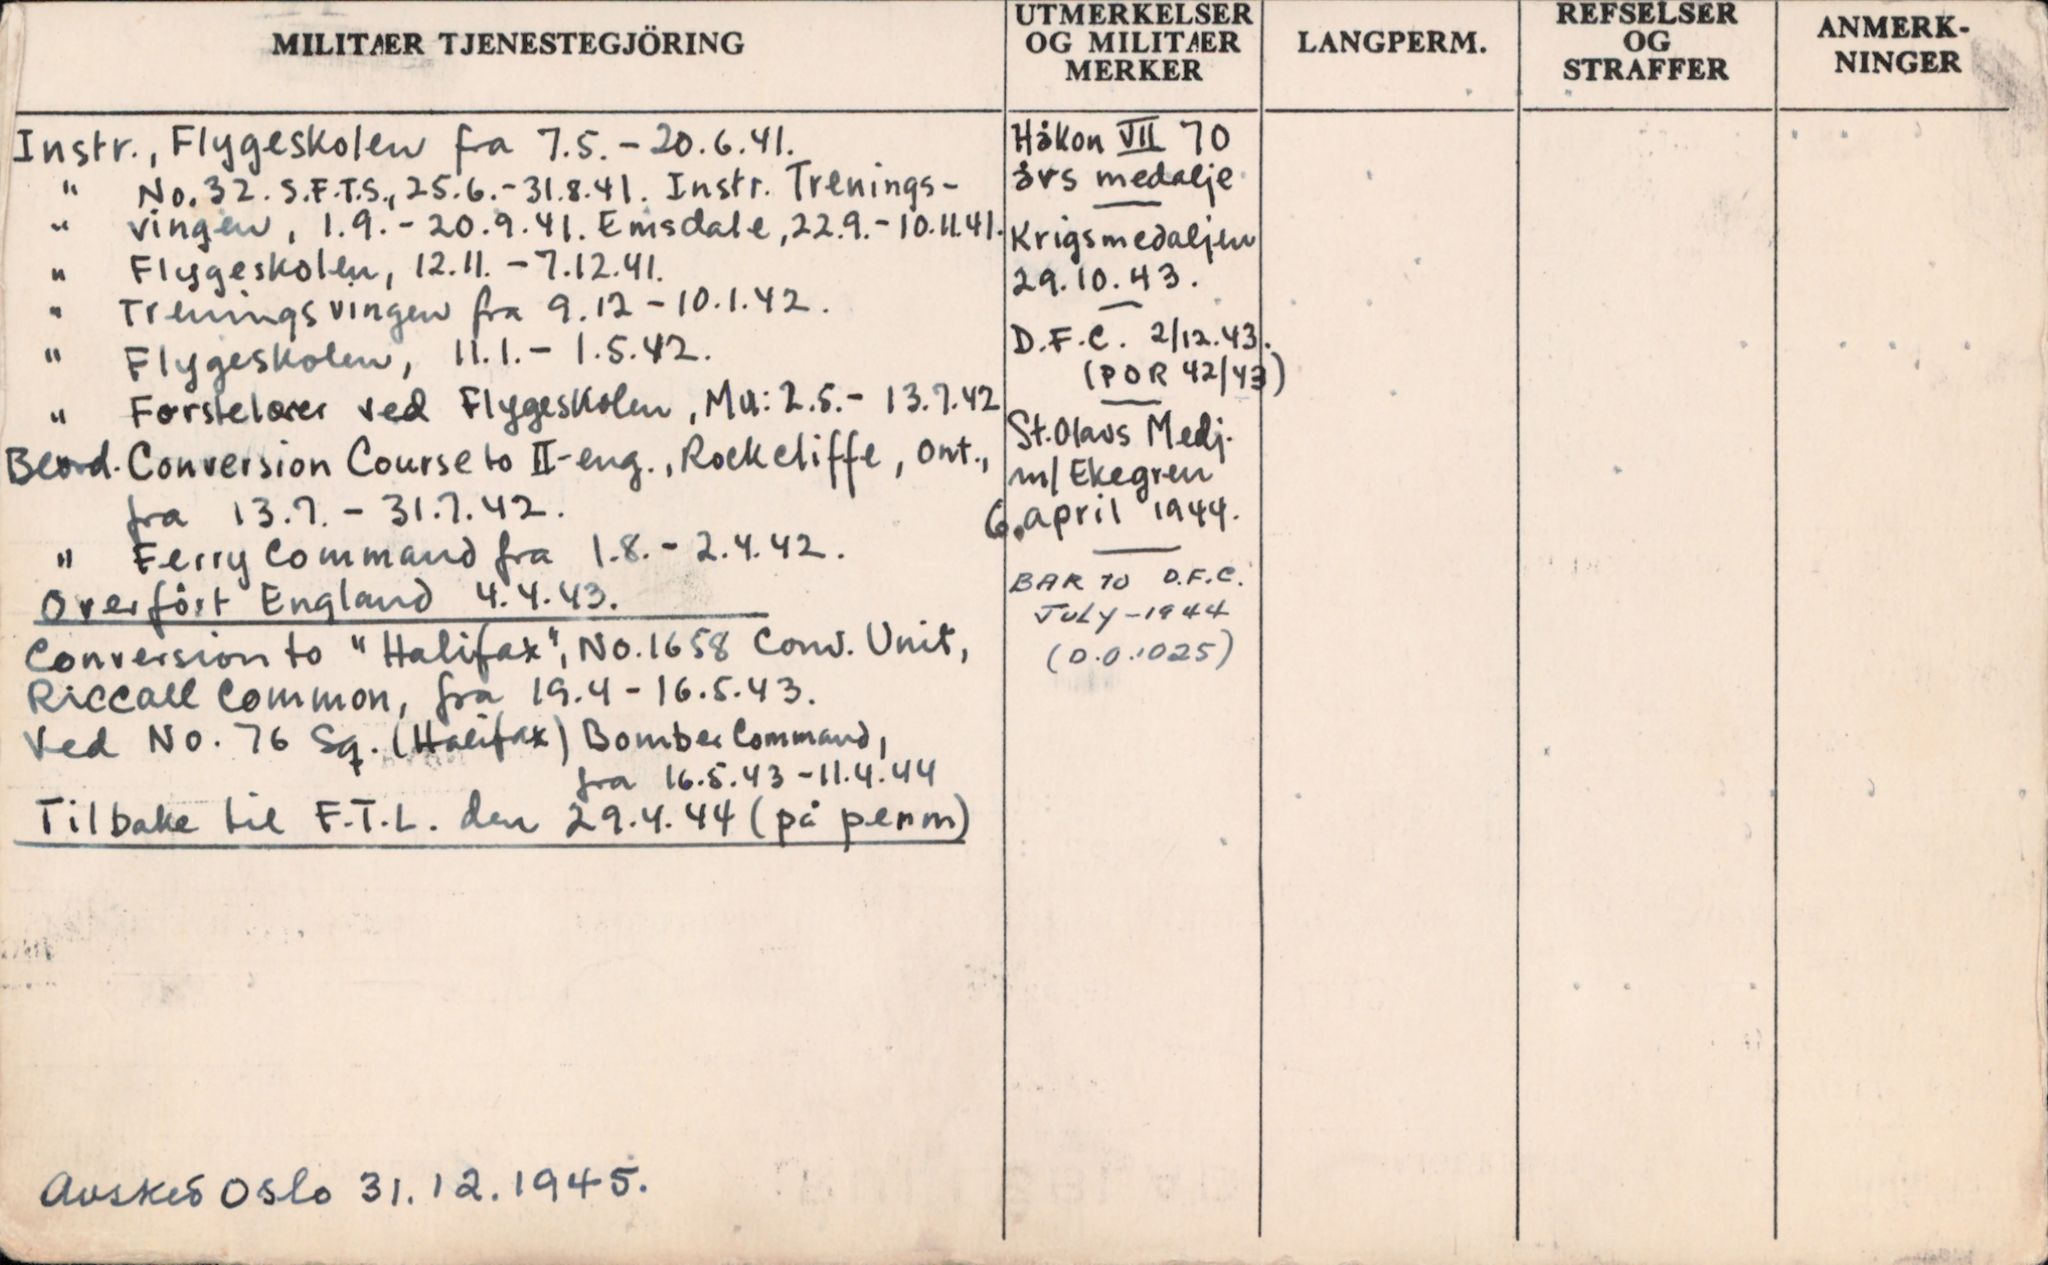 MILITÆR TJENESTEGJÖRING
UTMERKELSER
OG MILITÆR
MERKER
LANGPERM.
REFSELSER
OG
STRAFFER
ANMERK-
NINGER
Instr., Flygeskolen fra 7.5. - 20.6.41.
" No. 32. S.F.T.S., 25.6. - 31.8.41. Instr. Trenings-
" vingen, 1.9. - 20.9.41. Emsdale, 22.9. - 10.11.41.
" Flygeskolen, 12.11. - 7.12.41.
" Treningsvingen fra 9.12 - 10.1.42.
" Flygeskolen, 11.1. - 1.5.42.
" Førstelærer ved Flygeskolen, Mu: 2.5. - 13.7.42
Beord. Conversion Course to II-eng., Rockcliffe, Ont.,
fra 13.7. - 31.7.42.
" Ferry Command fra 1.8. - 2.4.42.
Overført England 4.4.43.
Conversion to "Halifax", No. 1658 Conv. Unit,
Riccall Common, fra 19.4 - 16.5.43.
Ved No. 76 Sq. (Halifax) Bomber Command,
fra 16.5.43 - 11.4.44
Tilbake til F.T.L. den 29.4.44 (på perm)
Avskjed Oslo 31.12.1945.
Håkon VII 70
års medalje
Krigsmedaljen
29.10.43.
D.F.C. 2/12.43.
(POR 42/43)
St. Olavs Medj.
m/ Ekegren
6. april 1944.
BAR TO D.F.C.
JULY - 1944
(D.O. 1025)